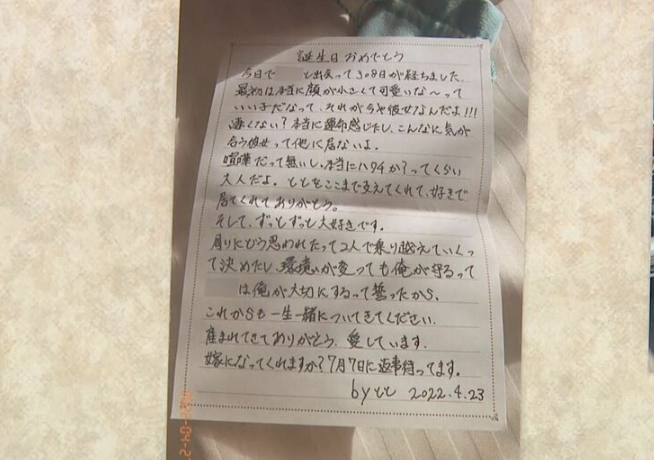 誕生日おめでとう
今日で と出会って308日が経ちました。
最初は本当に顔が小さくて可愛いな〜って
いい子だなって、それが今や彼女なんだよ!!!
凄くない?本当に運命感じたし、こんなに気が
合う彼女って他に居ないよ。
喧嘩だって無いし、本当にハタチか?ってくらい
大人だよ。ととをここまで支えてくれて、好きで
居てくれてありがとう。
そして、ずっとずっと大好きです。
周りにどう思われたって2人で乗り越えていくっ
て決めたし、環境が変っても俺が守るって
は俺が大切にするって誓ったから、
これからも一生一緒についてきてください。
産まれてきてありがとう、愛しています。
嫁になってくれますか?7月7日に返事待ってます。
byとと 2022.4.23